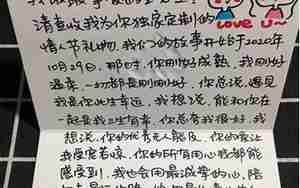 请查收我为你独家定制的
Love u~
情人节礼物，我们的故事开始于2020年
10月29日，那时，你刚好成熟，我刚好
温柔，一切都是刚刚好，你总说，遇见
我是你此生幸运，我想说，能和你在
一起是我三生有幸，你总夸我很好，我
想说，你的优秀无人能及，你的宠让
我受宠若惊，你的所有用心我都能
感受到，我也会用最诚挚的心，陪